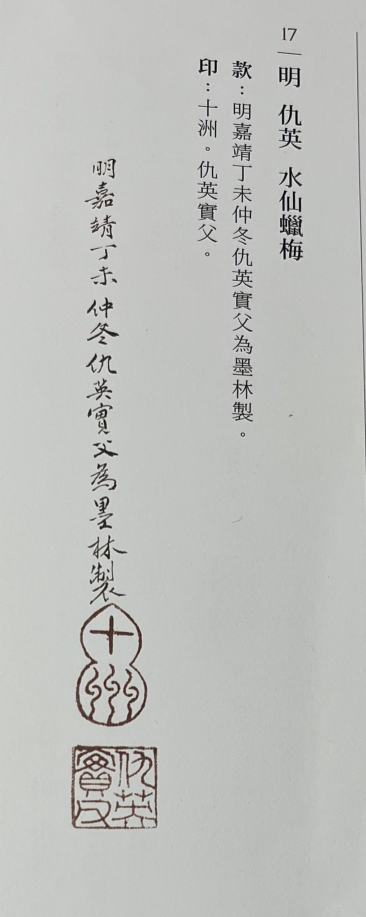 17
明 仇英 水仙蠟梅
款：明嘉靖丁未仲冬仇英實父為墨林製。
印：十洲。仇英實父。
明嘉靖丁未仲冬仇英實父為墨林製
十洲
仇英實父